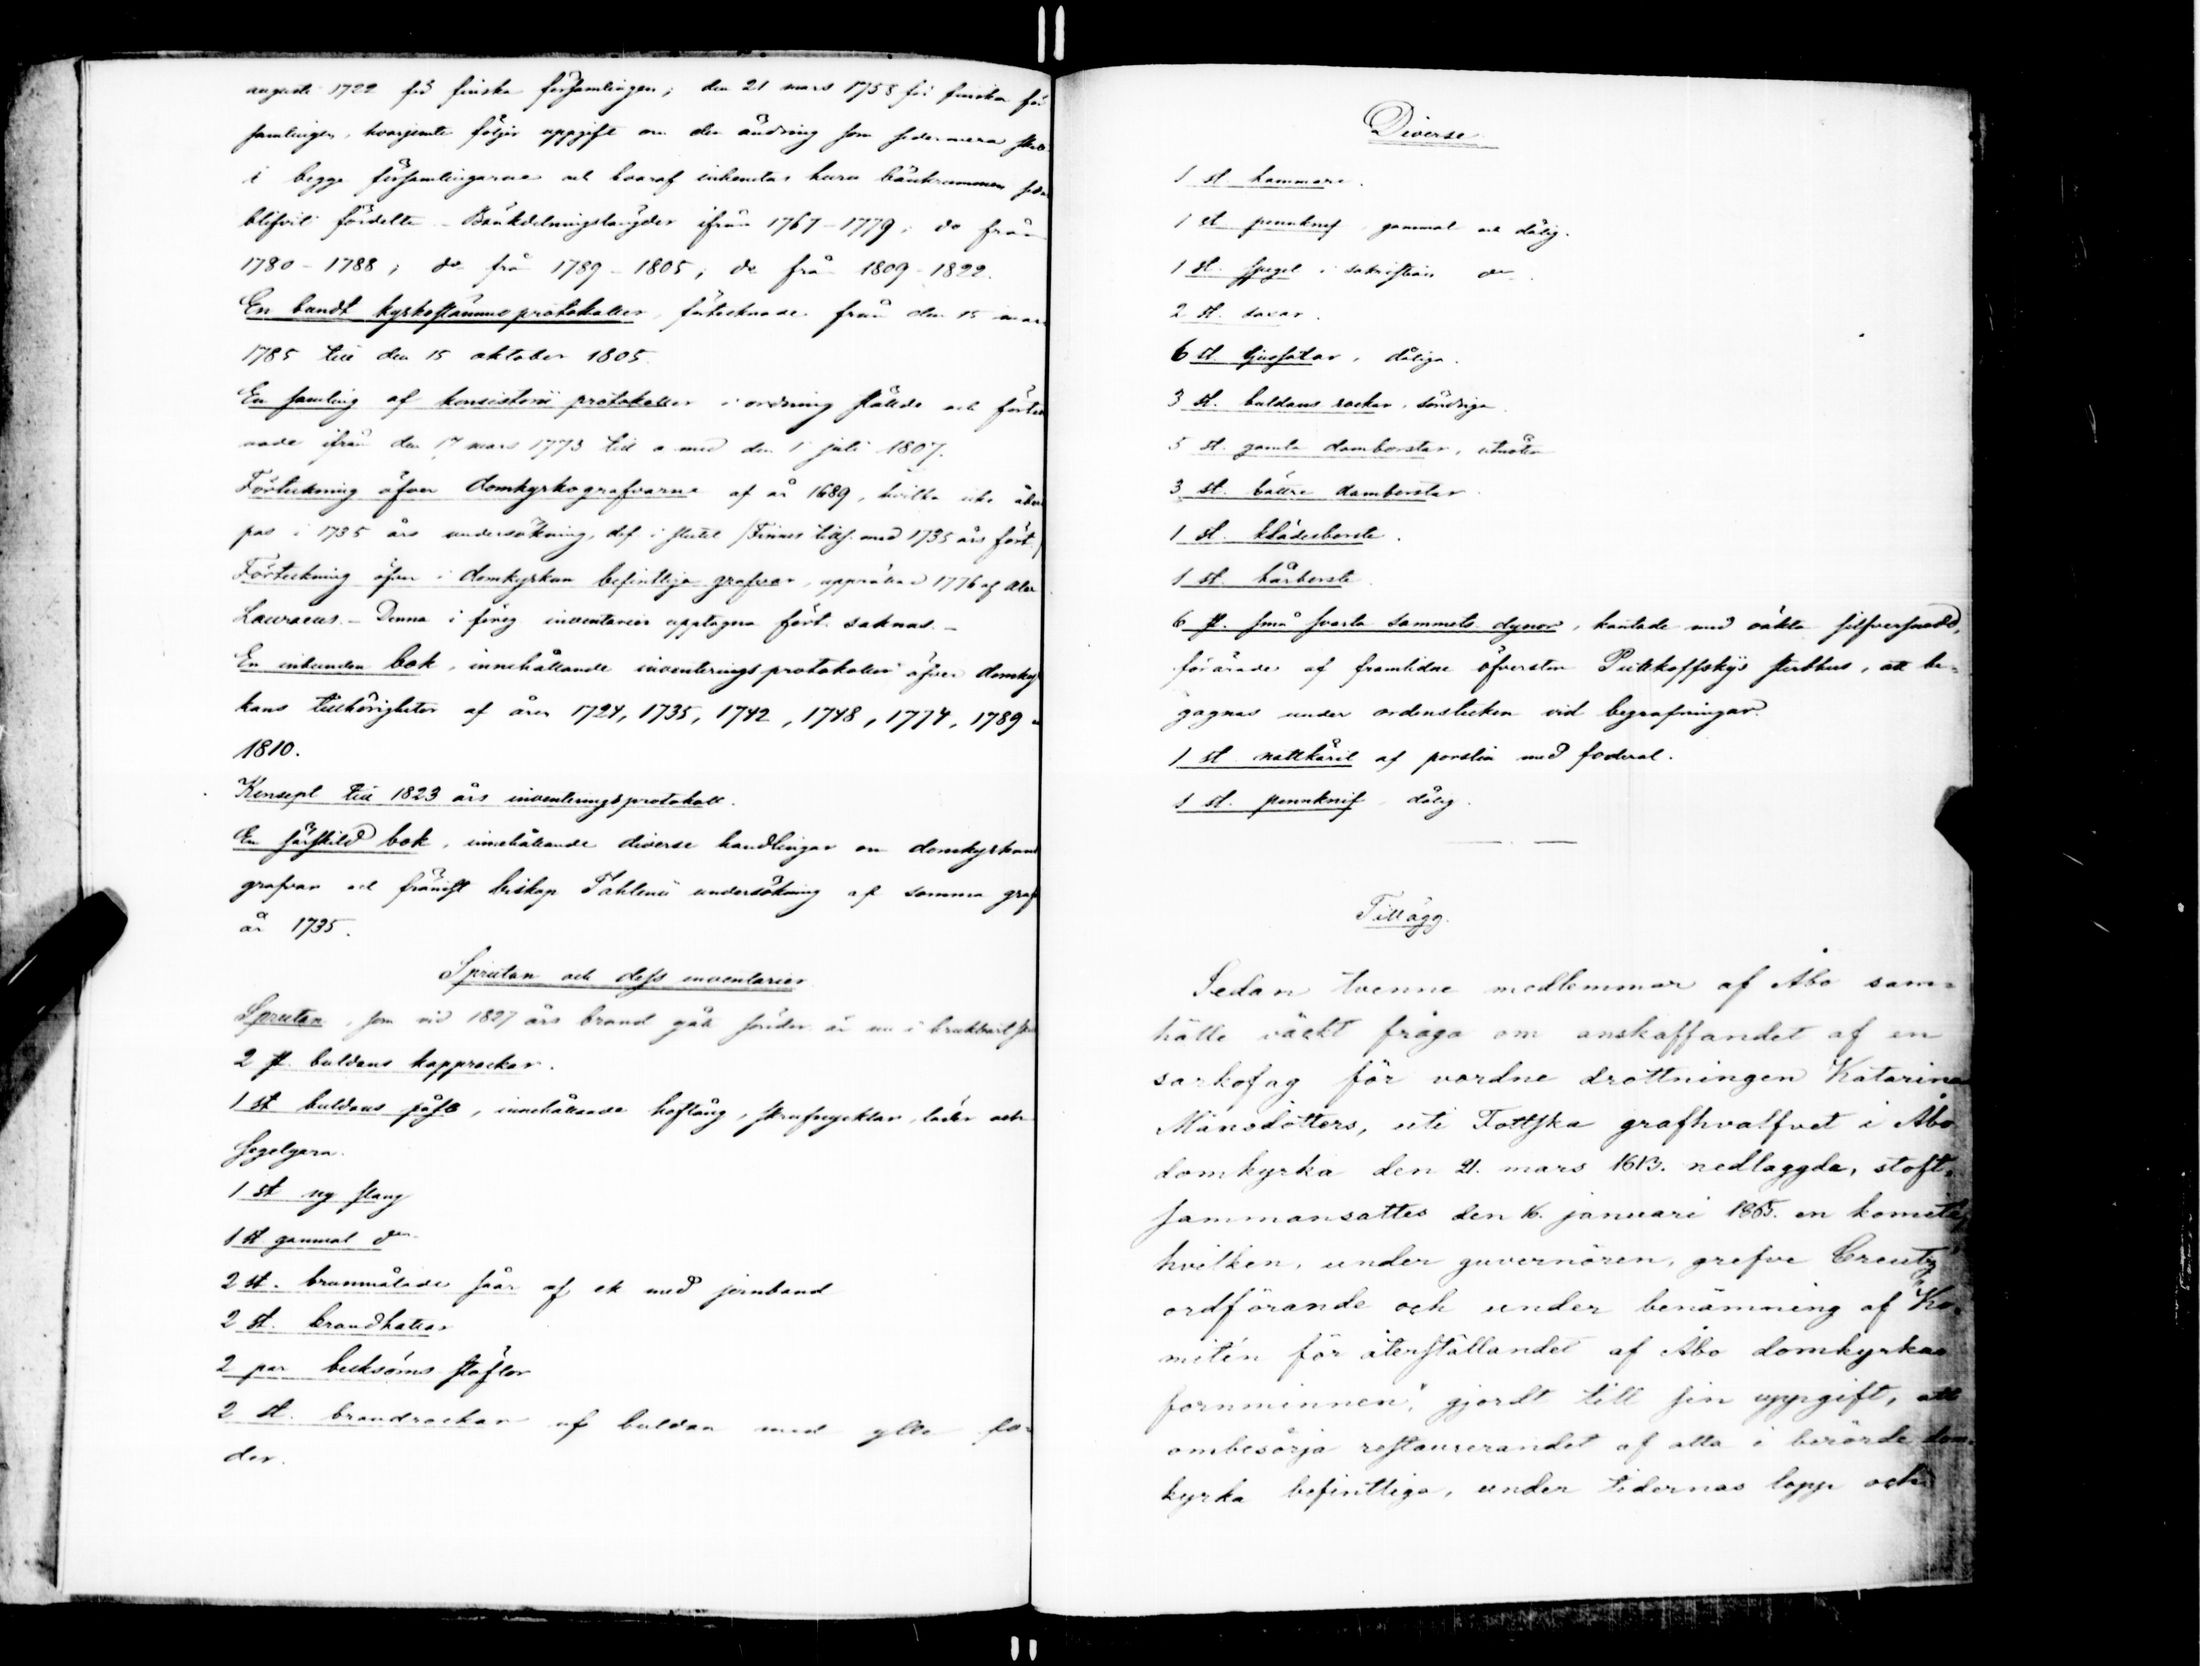 augusti 1722 för finska församlingen; den 21 mars 1758 för finska för
samlingen, hvarjemte följer uppgift om den ändring som sedermera
i begge församlingarne och hvaraf inhemtas huru bänkrummen
blifvit fördelte. Bänkdelningslängder ifrån 1767–1779; do från
1780–1788; do frå 1789–1805; do från 1809–1822.
En bundt kyrkostämmoprotokaller, förtecknade från den 15 mars
1785 till den 15 oktober 1805.
En samling af konsistorii protokoller i ordning stälde och förteck
nade ifrån den 17 mars 1773 till o med den 1 juli 1807.
Förteckning öfver domkyrkografvarne af år 1689, hvilka icke åbero
pas i 1735 års undersökning, def. i slutet (Finnes tills. med 1735 års fört.)
Förteckning öfver i domkyrkan befintliga grafvar, upprättad 1776 af
Lauraeus. – Denna i föreg inventarier upptagna fört. saknas. –
En inbunden bok, innehållande inventerings protokoller öfver domkyr
kans tillhörigheter af åren 1724, 1735, 1742, 1748, 1774, 1789
1810.
Konsept till 1823 års inventeringsprotokoll.
En särskild bok, innehållande diverse handlingar om domkyrkans
grafvar och främst biskop Fahlenii undersökning af samma graf
år 1735.
Sprutan och dess inventarier
Sprutan, som vid 1827 års brand gått sönder är nu i brukbart
2 st. buldans kapprockar.
1 st buldans påse, innehållande hoftång, skrufnycklar, läder och
segelgarn.
1 st ny slang
1 st gammal do
2 st. brunmålade såar af ek med jernband
2 st. brandhakar
2 par becksöms stöflor
2 st. brandrockar af buldan med ylle fo-
der.
Diverse
1 st hammare.
1 st pennknif, gammal och dålig.
1 st. spegel i sakristian do.
2 st. saxar.
6 st. ljussaxar, dåliga.
3 st. buldans rockar, söndriga.
5 st. gamla damborstar, utnötta
3 st. bättre damborstar.
1 st. klädesborste.
1 st. hårborste.
6 st. små svarta sammets dynor, kantade med oäkta silfversnodd,
förärade af framlidne öfversten Putkoffskys sterbhus, att be-
gagnas under ordenstecken vid begrafningar.
1 st nattkäril af porslin med foderal.
1 st. pennknif, dålig.
Tillägg.
Sedan tvenne medlemmar af Åbo sam-
hälle väckt fråga om anskaffandet af en
sarkofag för vordne drottningen Katarina
Månsdotters, uti Tottska grafhvalfvet i Åbo
domkyrka den 21. mars 1613. nedlaggda, stoft,
sammansattes den 16. januari 1865. en komité,
hvilken, under guvernören, grefve Creutz'
ordförande och under benämning af "Ko-
mitén för återställandet af Åbo domkyrkas
fornminnen," gjordt till sin uppgift, att
ombesörja restaurerandet af alla i berörde dom-
kyrka befintliga, under tidernas lopp och